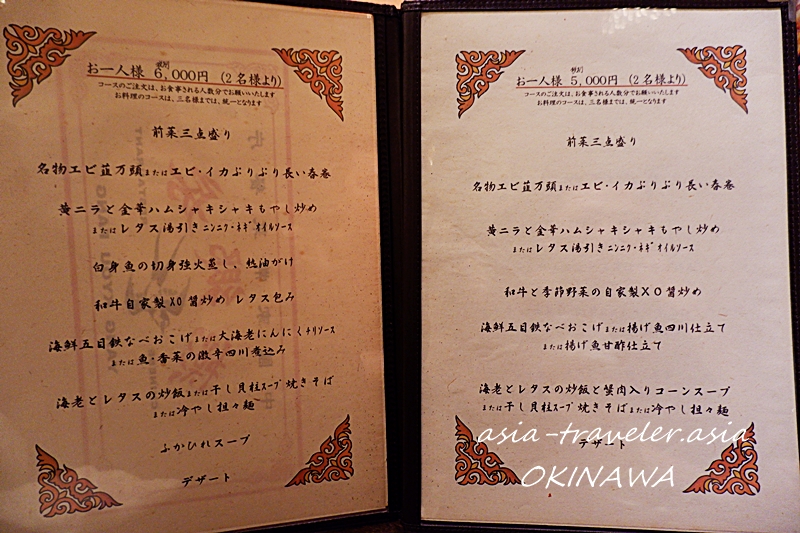 税別
お一人様 6,000円 (2名様より)
コースのご注文は、お食事される人数分でお願いいたします
お料理のコースは、三名様までは、統一となります
前菜三点盛り
名物エビ韮万頭またはエビ・イカぷりぷり長い春巻
黄ニラと金華ハムシャキシャキもやし炒め
またはレタス湯引きニンニク・ネギオイルソース
白身魚の切身強火蒸し、熱油がけ
和牛自家製XO醤炒め レタス包み
海鮮五目鉄なべおこげまたは大海老にんにくチリソース
または魚・香菜の激辛四川煮込み
海老とレタスの炒飯または干し貝柱スープ焼きそば
または冷やし担々麺
ふかひれスープ
デザート
税別
お一人様 5,000円 (2名様より)
コースのご注文は、お食事される人数分でお願いいたします
お料理のコースは、三名様までは、統一となります
前菜三点盛り
名物エビ韮万頭またはエビ・イカぷりぷり長い春巻
黄ニラと金華ハムシャキシャキもやし炒め
またはレタス湯引きニンニク・ネギオイルソース
和牛と季節野菜の自家製XO醤炒め
海鮮五目鉄なべおこげまたは揚げ魚四川仕立て
または揚げ魚甘酢仕立て
海老とレタスの炒飯と蟹肉入りコーンスープ
または干し貝柱スープ焼きそばまたは冷やし担々麺
デザート
asia-traveler.asia
OKINAWA